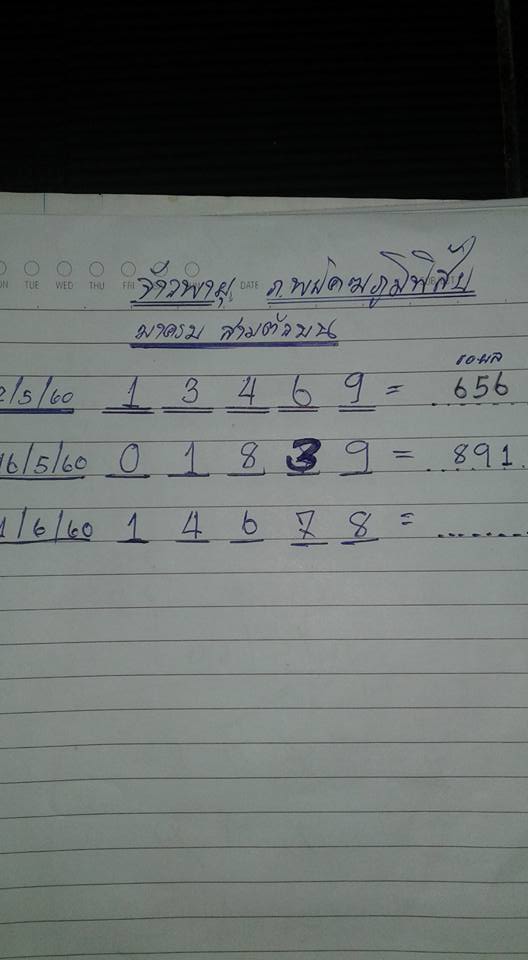 ON TUE WED THU FRI DATE
จ้าวพายุ ภ.พยัคฆภูมิพิสัย
มาครบ สามตัวบน
ขอผล
2/5/60 1 3 4 6 9 = 656
16/5/60 0 1 8 3 9 = 891
1/6/60 1 4 6 7 8 = ........